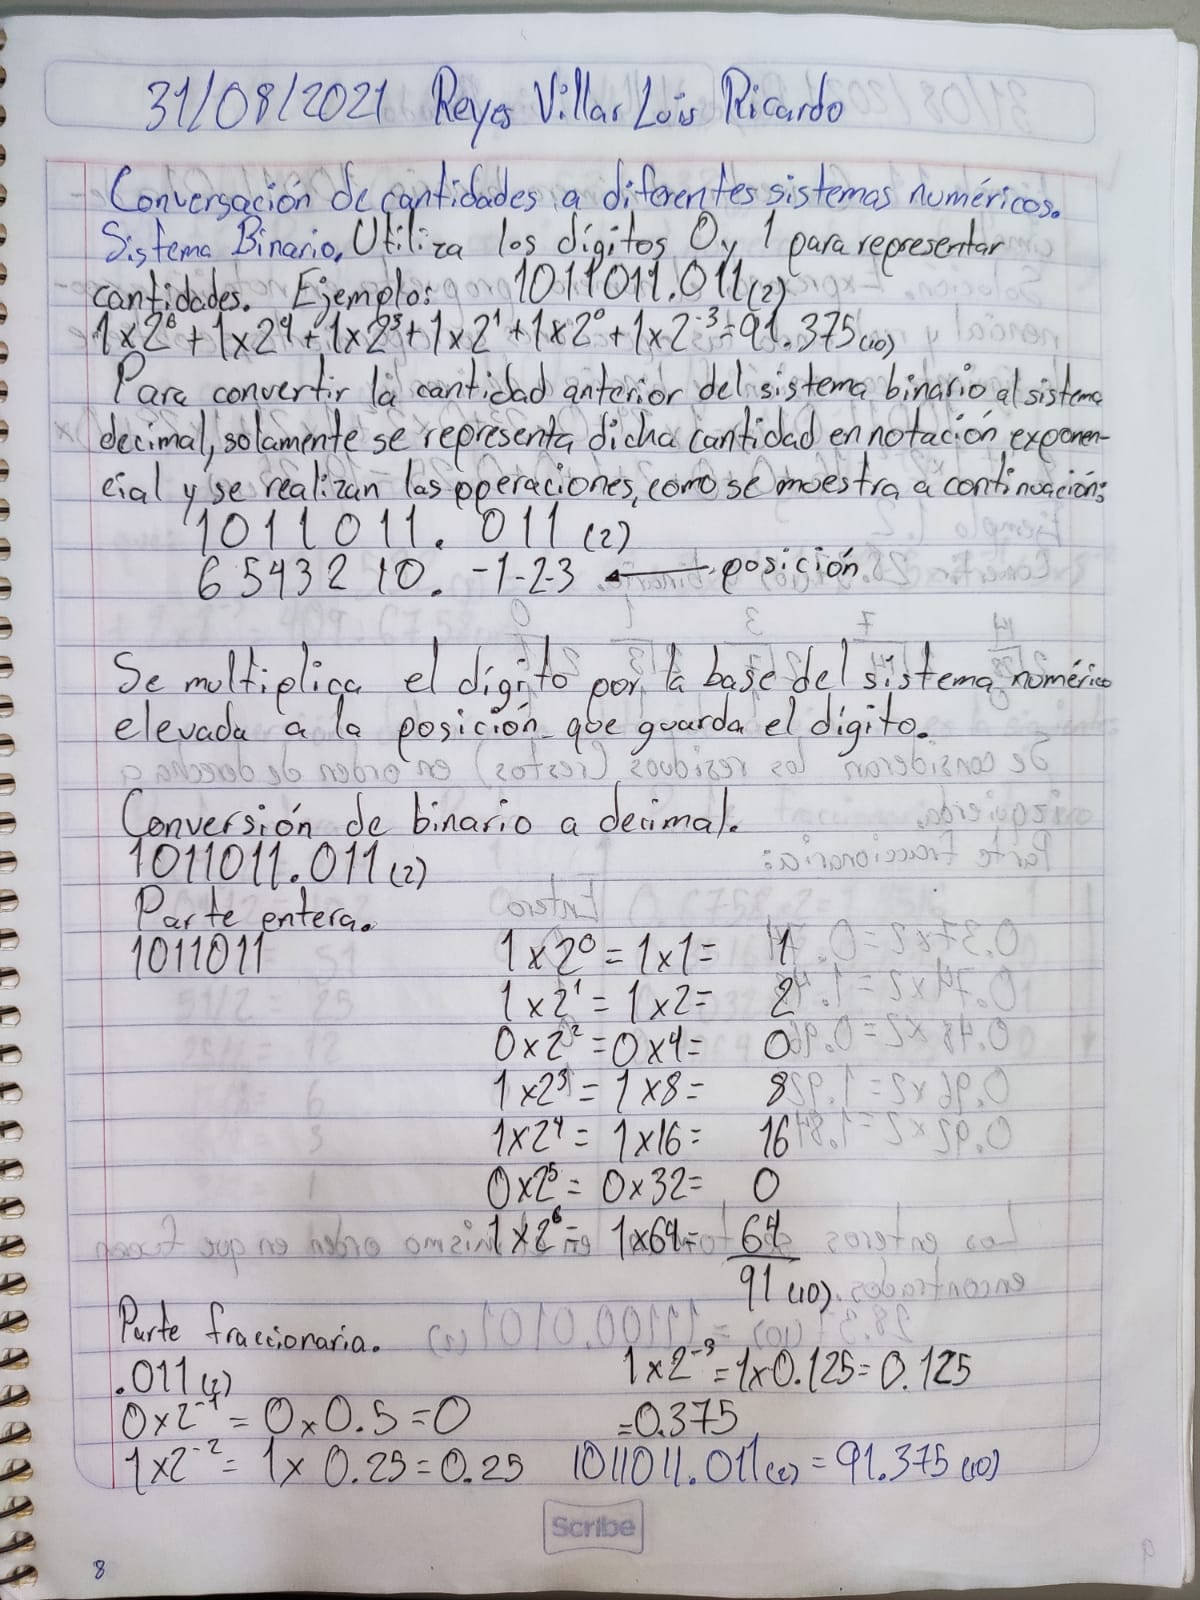 31/08/2021 Reyes Villar Luis Ricardo
Conversación de cantidades a diferentes sistemas numéricos.
Sistema Binario. Utiliza los dígitos 0 y 1 para representar
cantidades. Ejemplo: 1011011.011(2)
1x2⁶+1x2⁴+1x2³+1x2¹+1x2⁰+1x2⁻³=91.375(10)
Para convertir la cantidad anterior del sistema binario al sistema
decimal, solamente se representa dicha cantidad en notación exponen-
cial y se realizan las operaciones, como se muestra a continuación:
1011011. 011 (2)
6543210. -1-2-3 ← posición.
Se multiplica el dígito por la base del sistema numérico
elevada a la posición que guarda el dígito.
Conversión de binario a decimal.
1011011.011(2)
Parte entera.
1011011 1x2⁰=1x1= 1
1x2¹=1x2= 2
0x2²=0x4= 0
1x2³=1x8= 8
1x2⁴=1x16= 16
0x2⁵=0x32= 0
1x2⁶=1x64= 64
91(10)
Parte fraccionaria.
.011(2) 1x2⁻³=1x0.125=0.125
0x2⁻¹=0x0.5=0 =0.375
1x2⁻²=1x0.25=0.25 1011011.011(2)=91.375(10)
Scribe
8